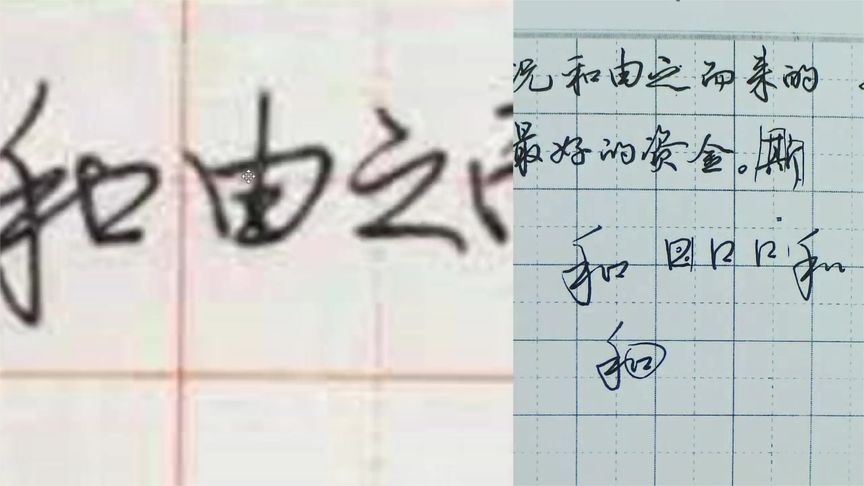 和由之
况和由之而来的
最好的资金。斯
和 回 口 口 和
和